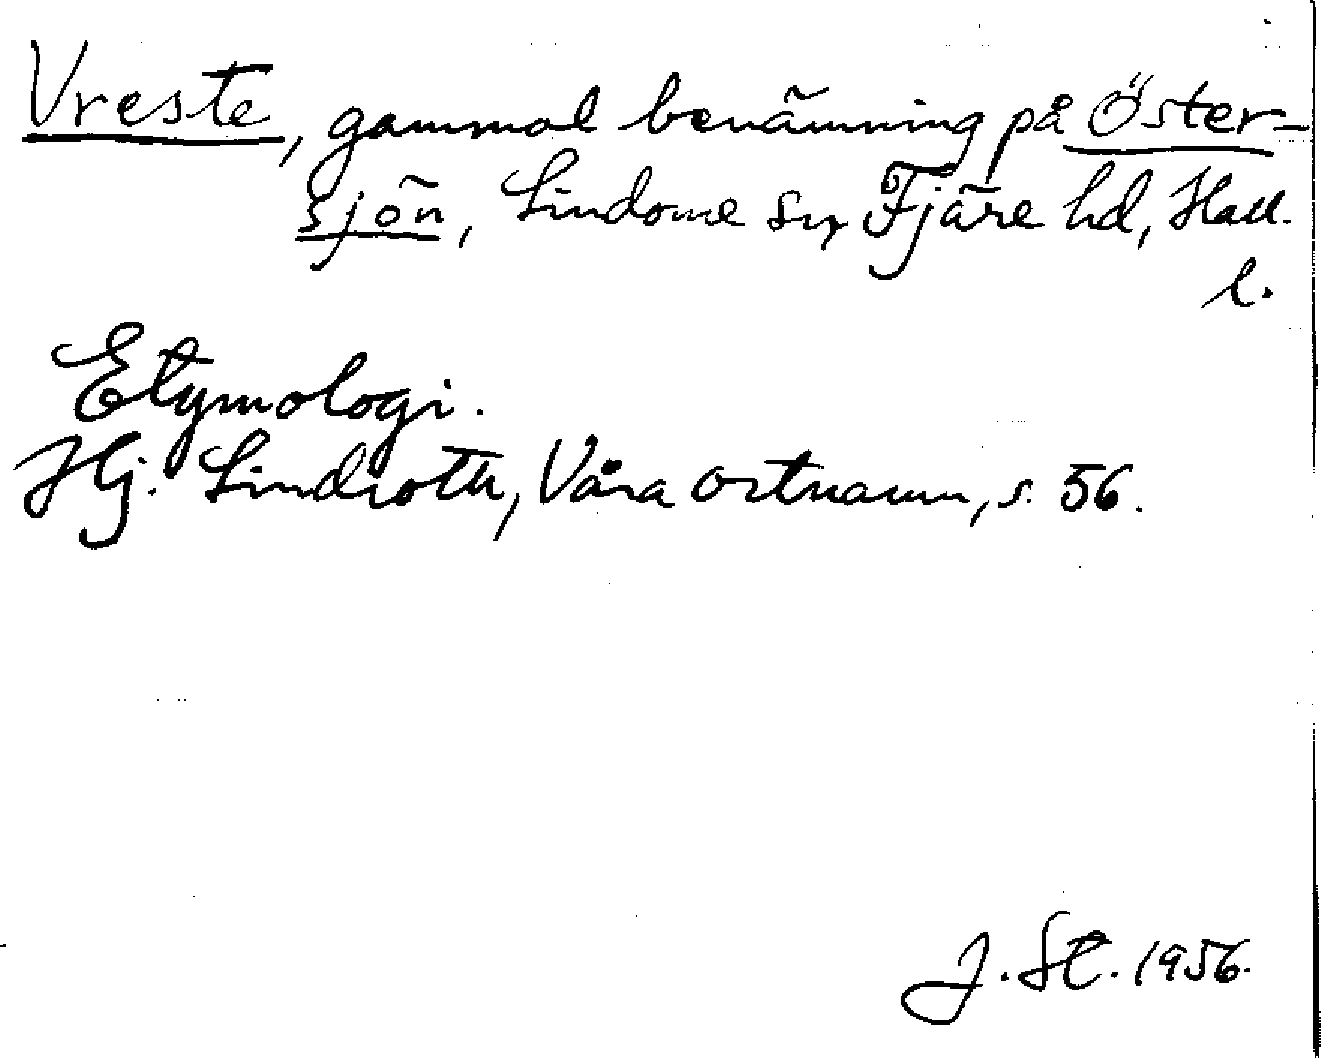 Vreste, gammal benämning på Öster-
sjön, Lindome sn, Fjäre hd, Hall.
l.
Etymologi.
Hj. Lindroth, Våra ortnamn, s. 56.
J. St. 1956.